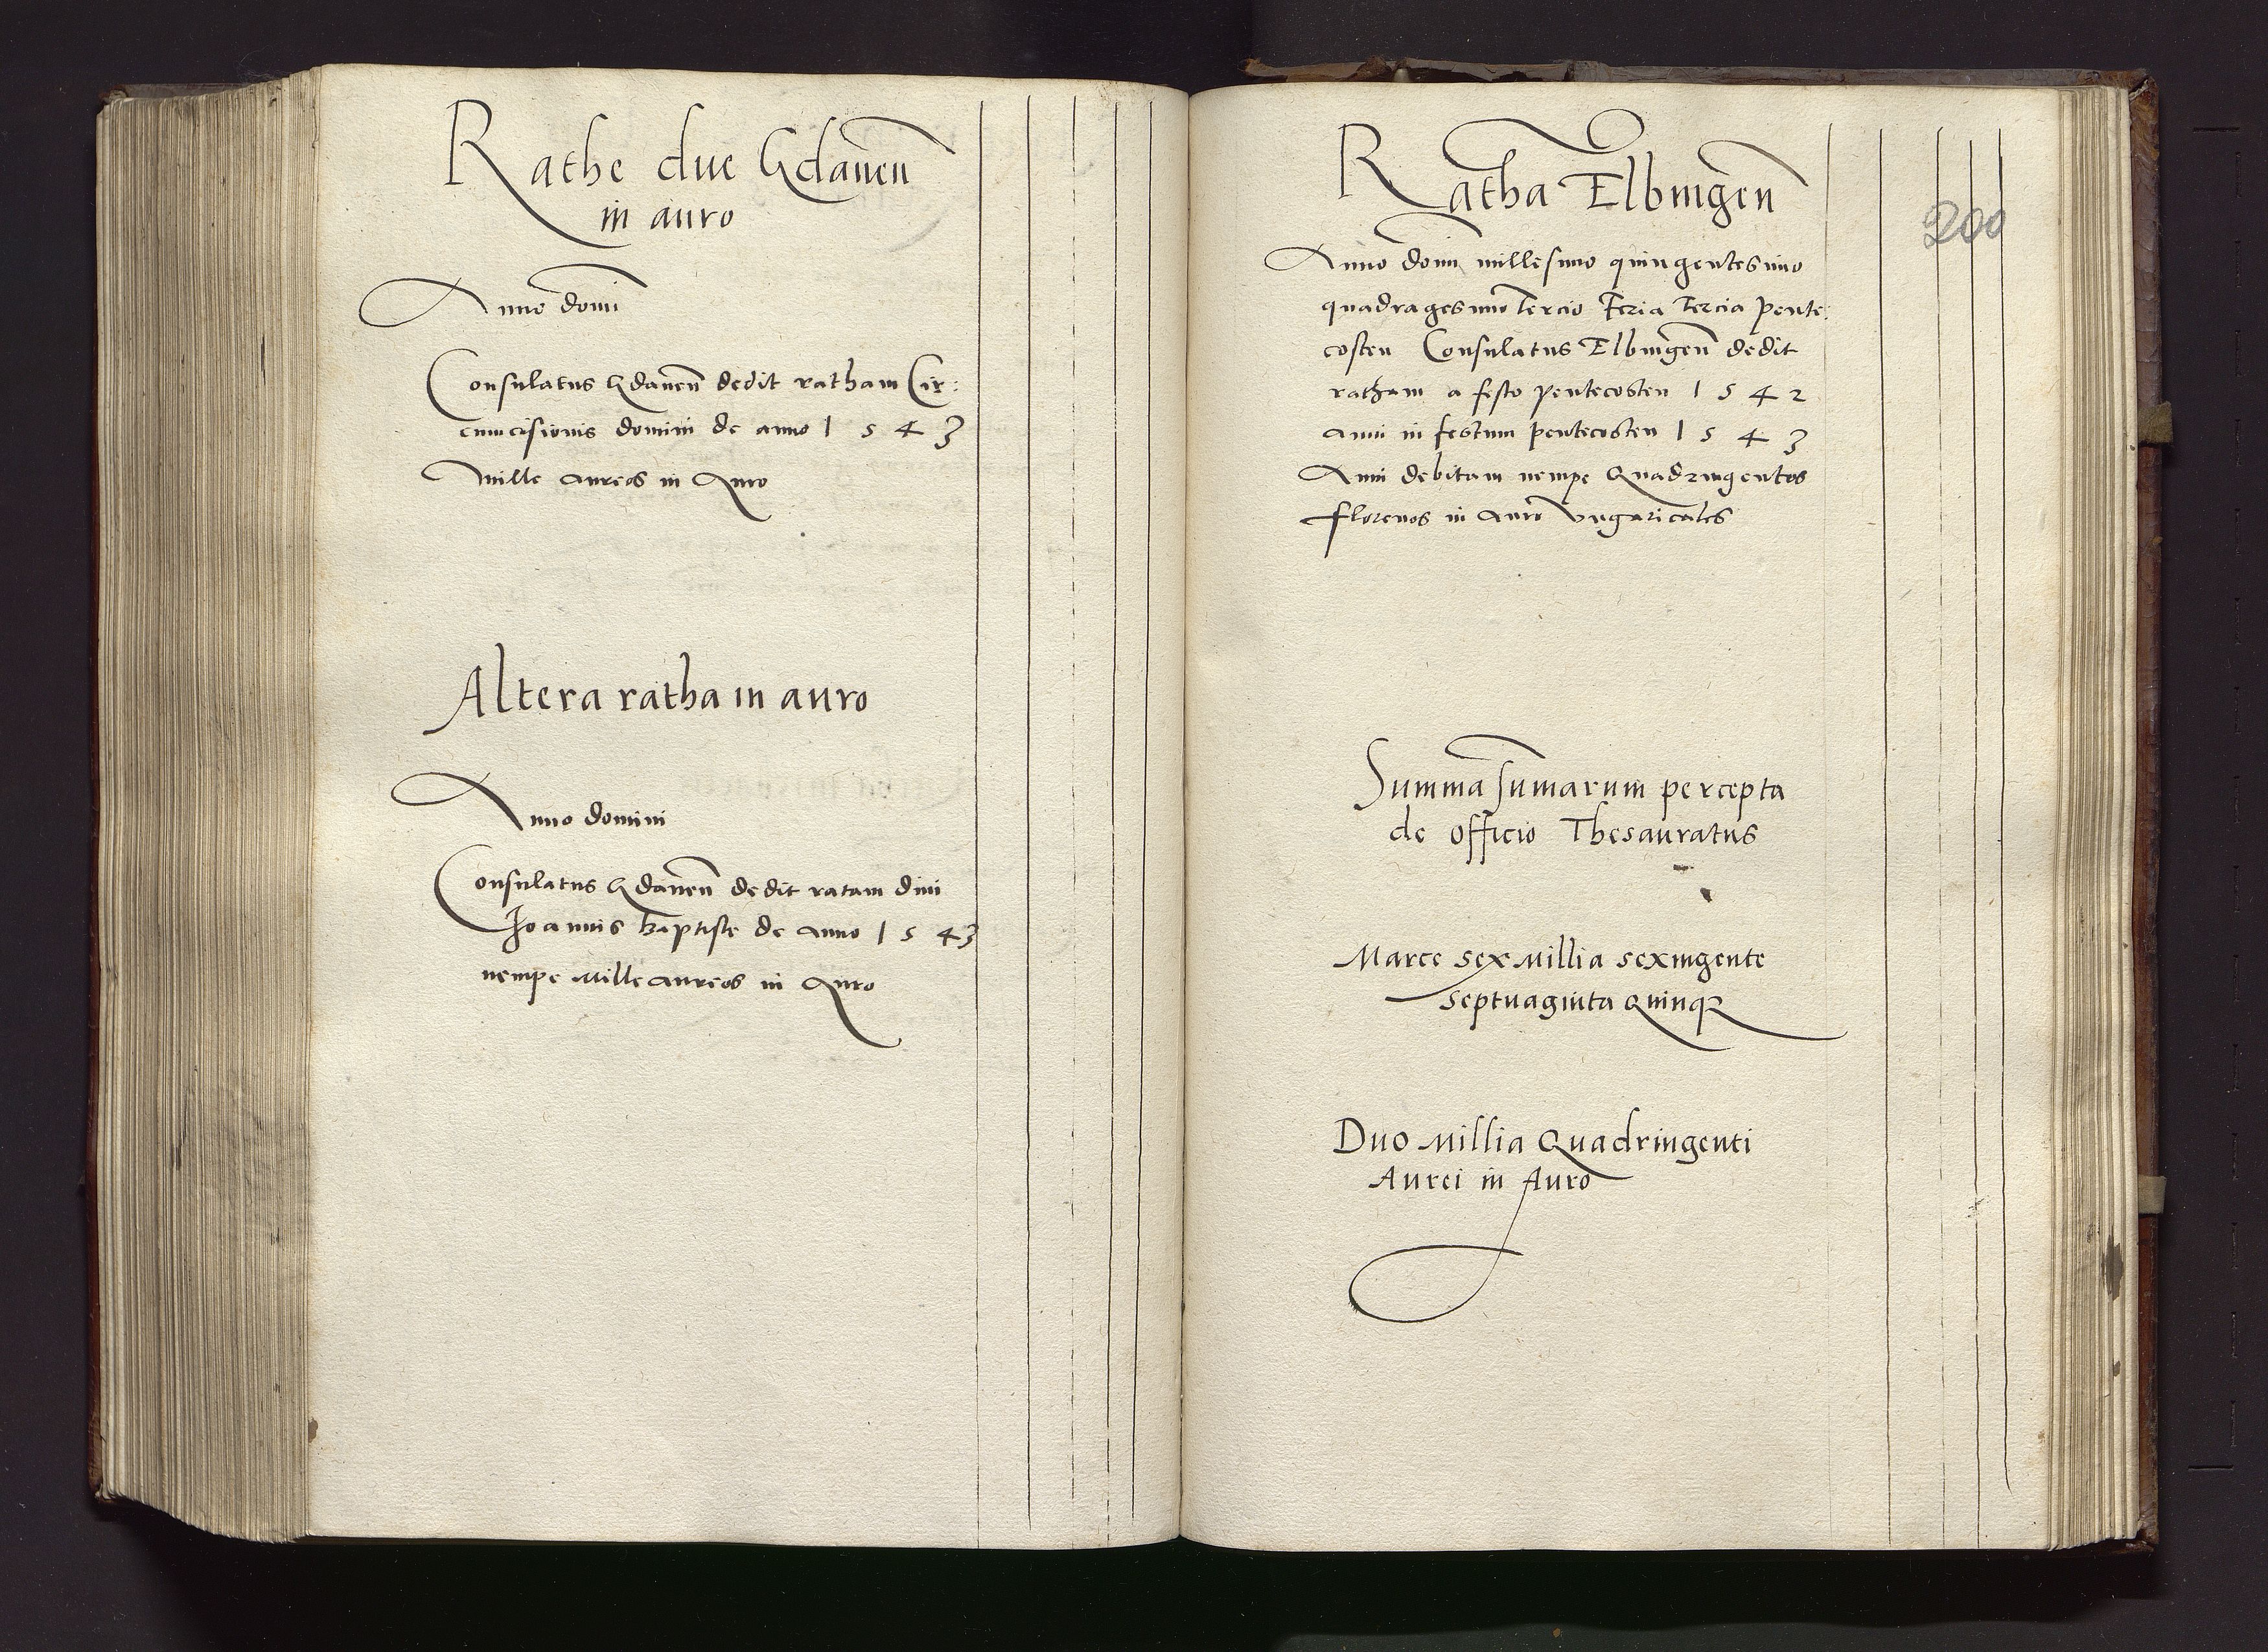 Rathe due Gdanen̄
in auro
Anno domi
Consulatus Gdanen̄ dedit ratham Cir:
cumcisionis domini de anno 1 5 4 3
Mille aureos in Auro
Altera ratha in auro
Anno domini
Consulatus Gdanen̄ dedit ratam diui
Ioannis baptiste de anno 1 5 4 3
nempe Mille aureos in Auro
Ratha Elbingen̄
200
Anno domi millesimo quingentesimo
quadragesimo tercio Feria tercia Pente:
costen Consulatus Elbingen̄ dedit
ratham a festo pentecosten 1 5 4 2
anni in festum pentecosten 1 5 4 3
Anni debitam nempe Quadringentos
Florenos in auro vngaricales
Summa sumarum percepta
de officio Thesauratus
Marce sex Millia sexingente
septuaginta Quinqꝫ
Duo Millia Quadringenti
Aurei in Auro